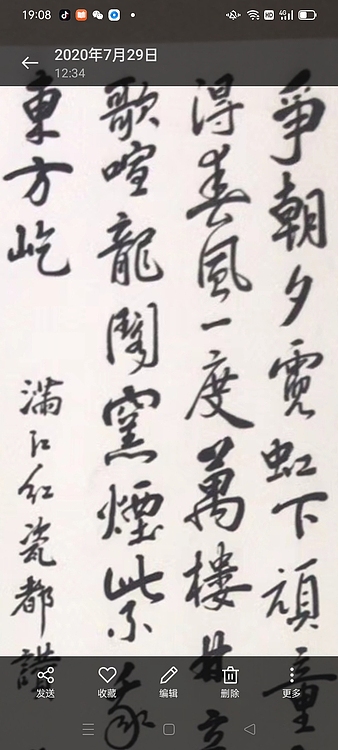 19:08
2020年7月29日
12:34
爭朝夕霓虹下頑童
得春風一度萬樓林立
歌喧龍閣窯煙紫
東方屹
滿江紅瓷都譜
发送
收藏
编辑
删除
更多